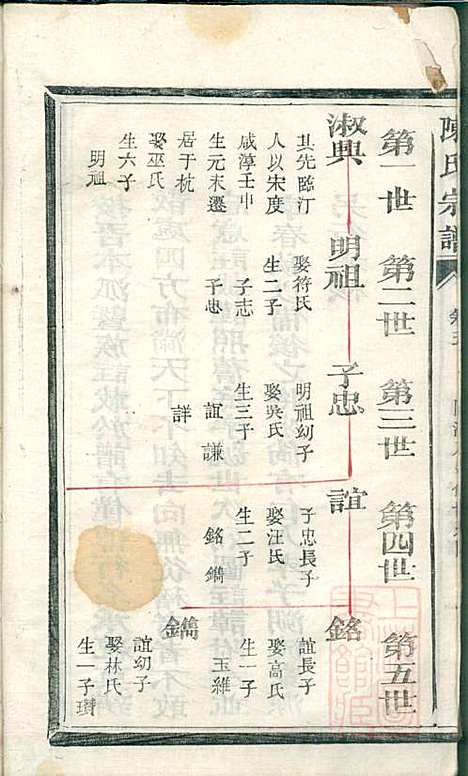 陳氏宗譜
卷五
第一世
第二世
第三世
第四世
第五世
淑興
其先臨汀
人以宋度
咸淳壬申
生元末遷
居于杭
娶巫氏
生六子
明祖
明祖
娶符氏
生二子
子志
子忠
子忠
明祖幼子
娶吳氏
生三子
誼
謙
詳
誼
子忠長子
娶汪氏
生二子
銘
鐫
銘
誼長子
娶高氏
生一子
玉維
鐫
誼幼子
娶林氏
生一子瓚